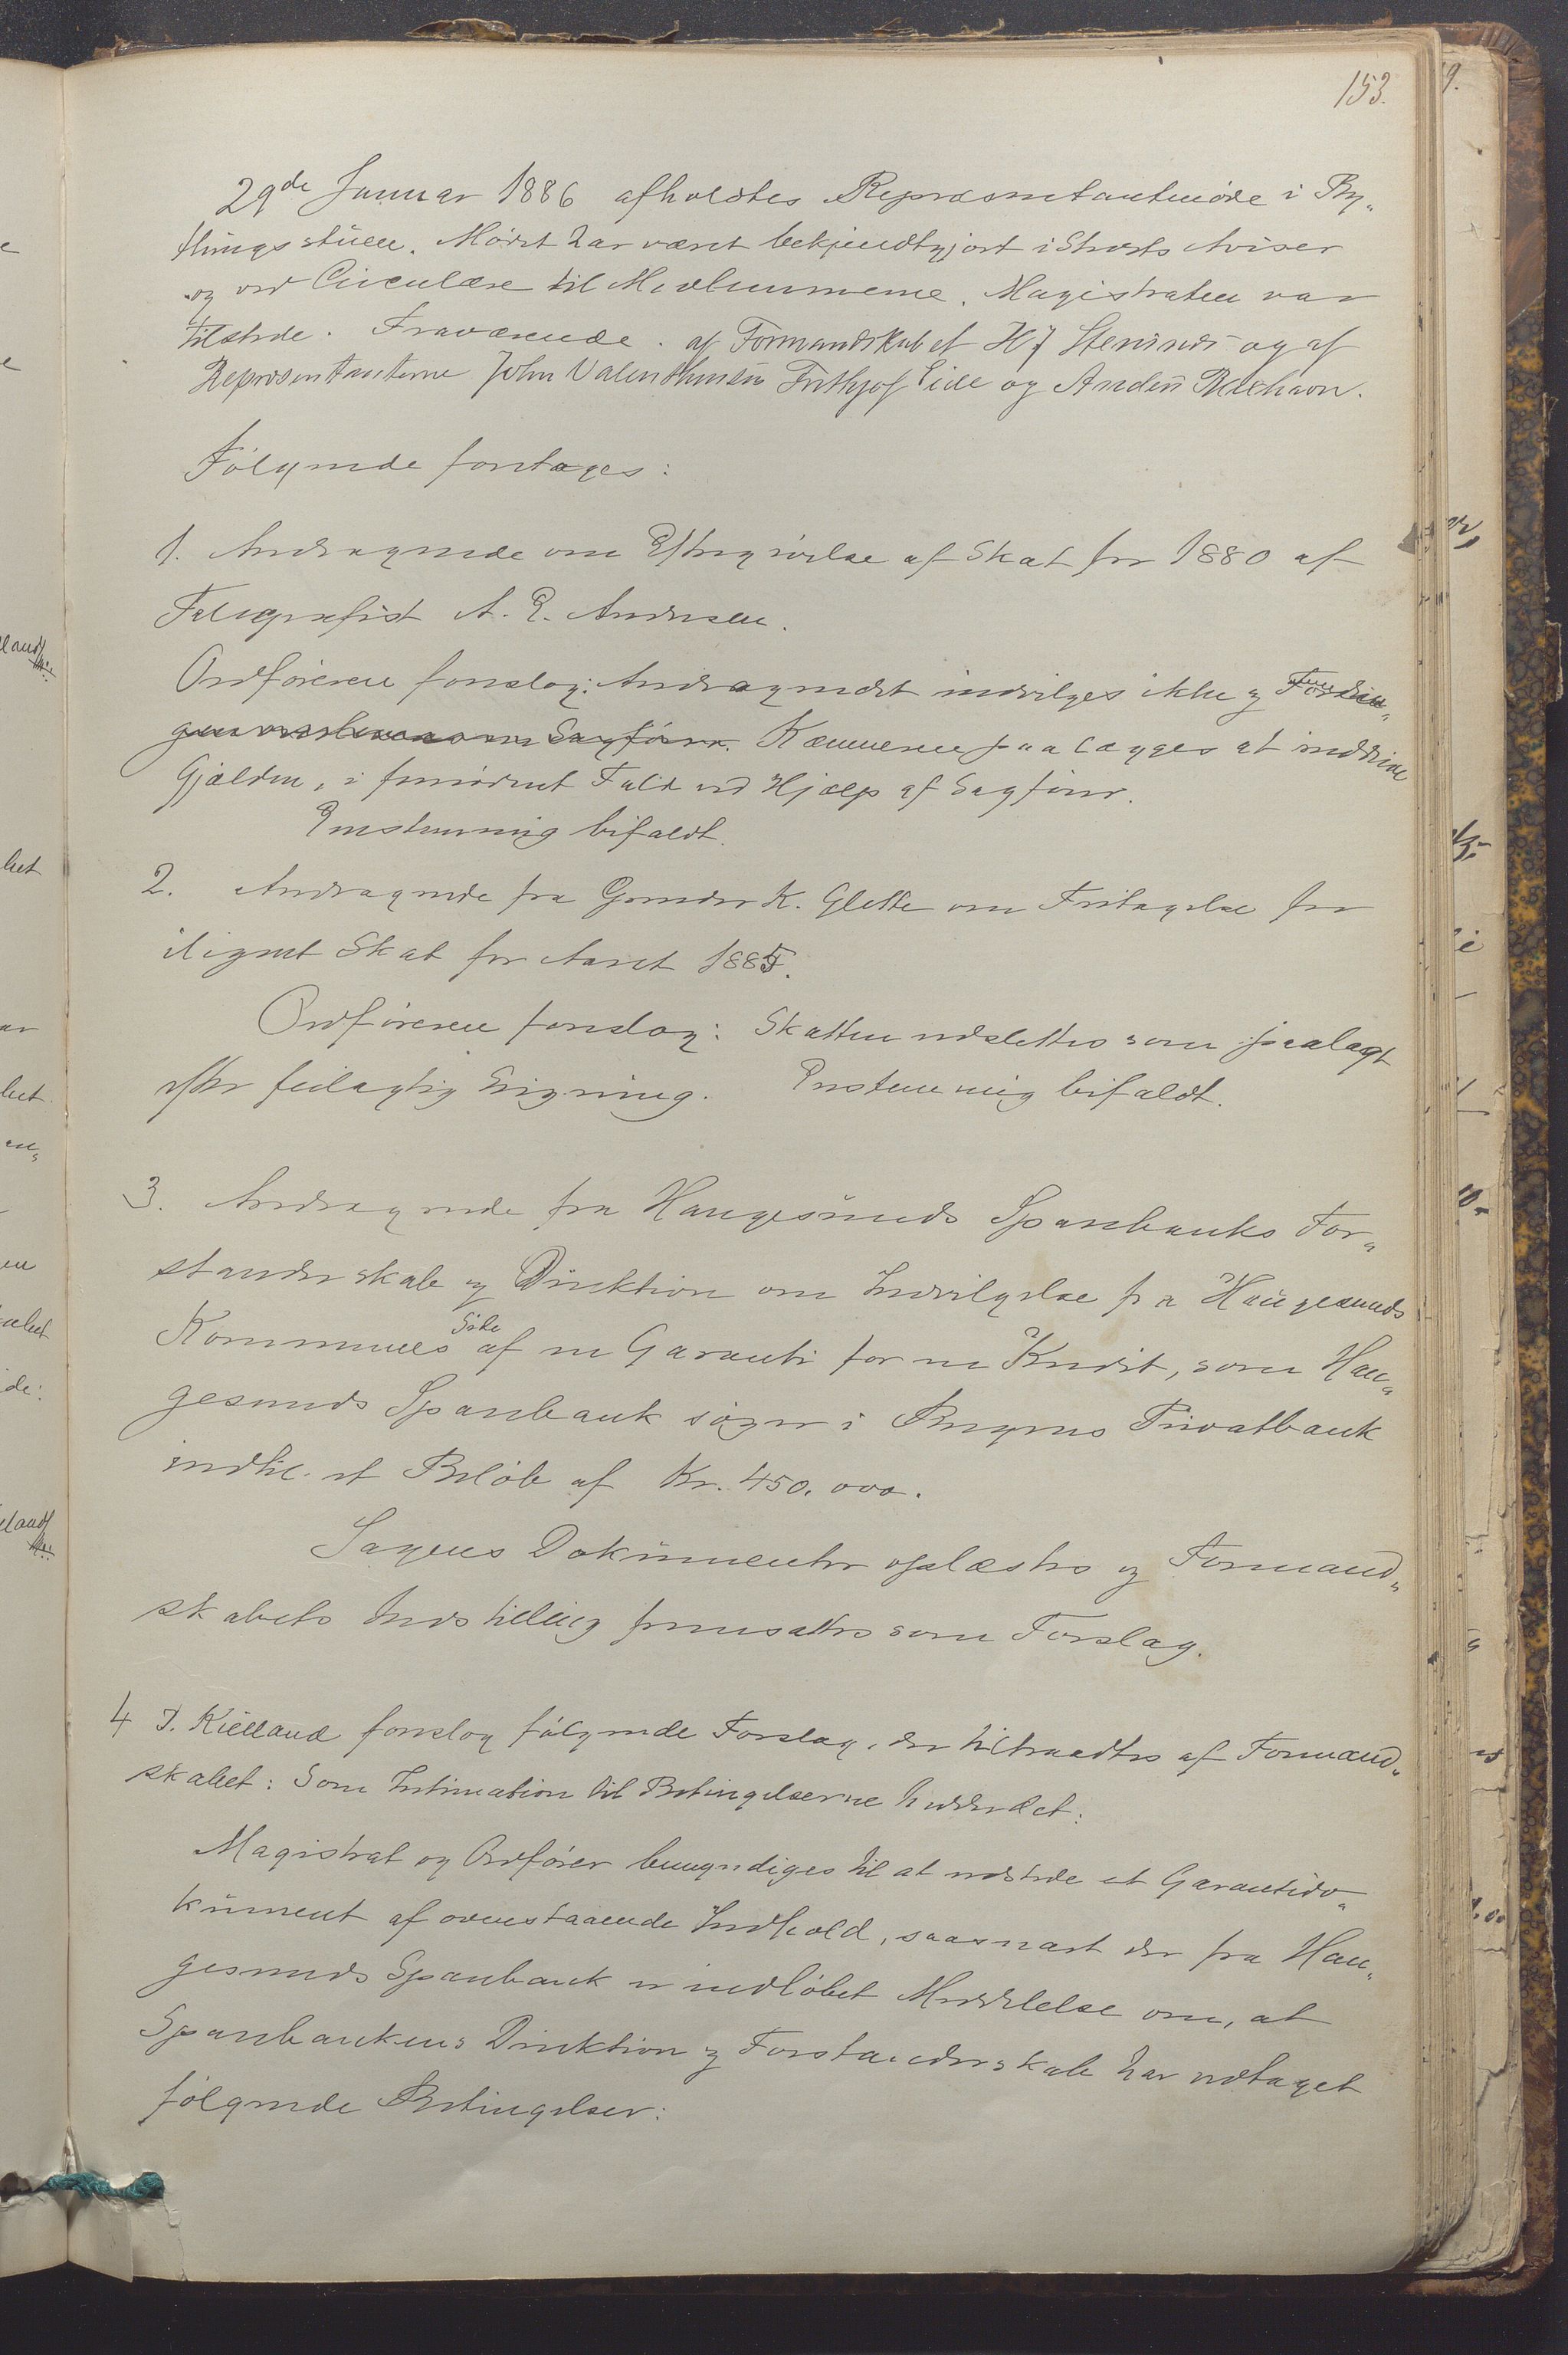 153.
29de Januar 1886 afholdtes Repræsentantmöde i By„
thingsstuen. Mödet har været bekjendtgjort i Stedets Aviser
og ved Circulære til Medlemmerne. Magistraten var
tilstede. Fraværende. af Formandskabet H J og af
Repræsentanterne John Valentinsen Frithjof Eide og
Fölgende foretages:
1. Andragende om Eftergivelse af Skat for 1880 af
Telegrafist A. E. Andersen.
Ordföreren foreslog: Andragendet indvilges ikke og Fordrin„
gen om Sagförer. Kæmneren paalægges at inddrive
Gjælden, i fornödent Fald ved Hjælp af Sagförer.
Enstemmig bifaldt.
2. Andragende fra Gründer K. Glette om Fritagelse for
ilignet Skat for Aaret 1885.
Ordföreren foreslog: Skatten udslettes som paalagt
efter feilagtig Ligning. Enstemmig bifaldt.
3. Andragende fra Haugesunds Sparebanks For„
standerskab og Direktion om Indvilgelse fra Haugesunds
Kommunes Side af en Garanti for en Kredit, som Hau„
gesunds Sparebank söger i Bergens Privatbank
indtil et Belöb af Kr. 450.000.
Sagens Dokumenter oplæstes og Formand„
skabets Indstilling fremsattes som Forslag.
4 J. Kielland foreslog fölgende Forslag, der tiltraadtes af Formand„
skabet: Som Intimation til Betingelserne
Magistrat og Ordförer bemyndiges til at udstede et Garantido„
kument af ovenstaaende Indhold, saasnart der fra Hau„
gesunds Sparebank er indlöbet Meddelelse om, at
Sparebankens Direktion og Forstanderskab har vedtaget
fölgende Betingelser: